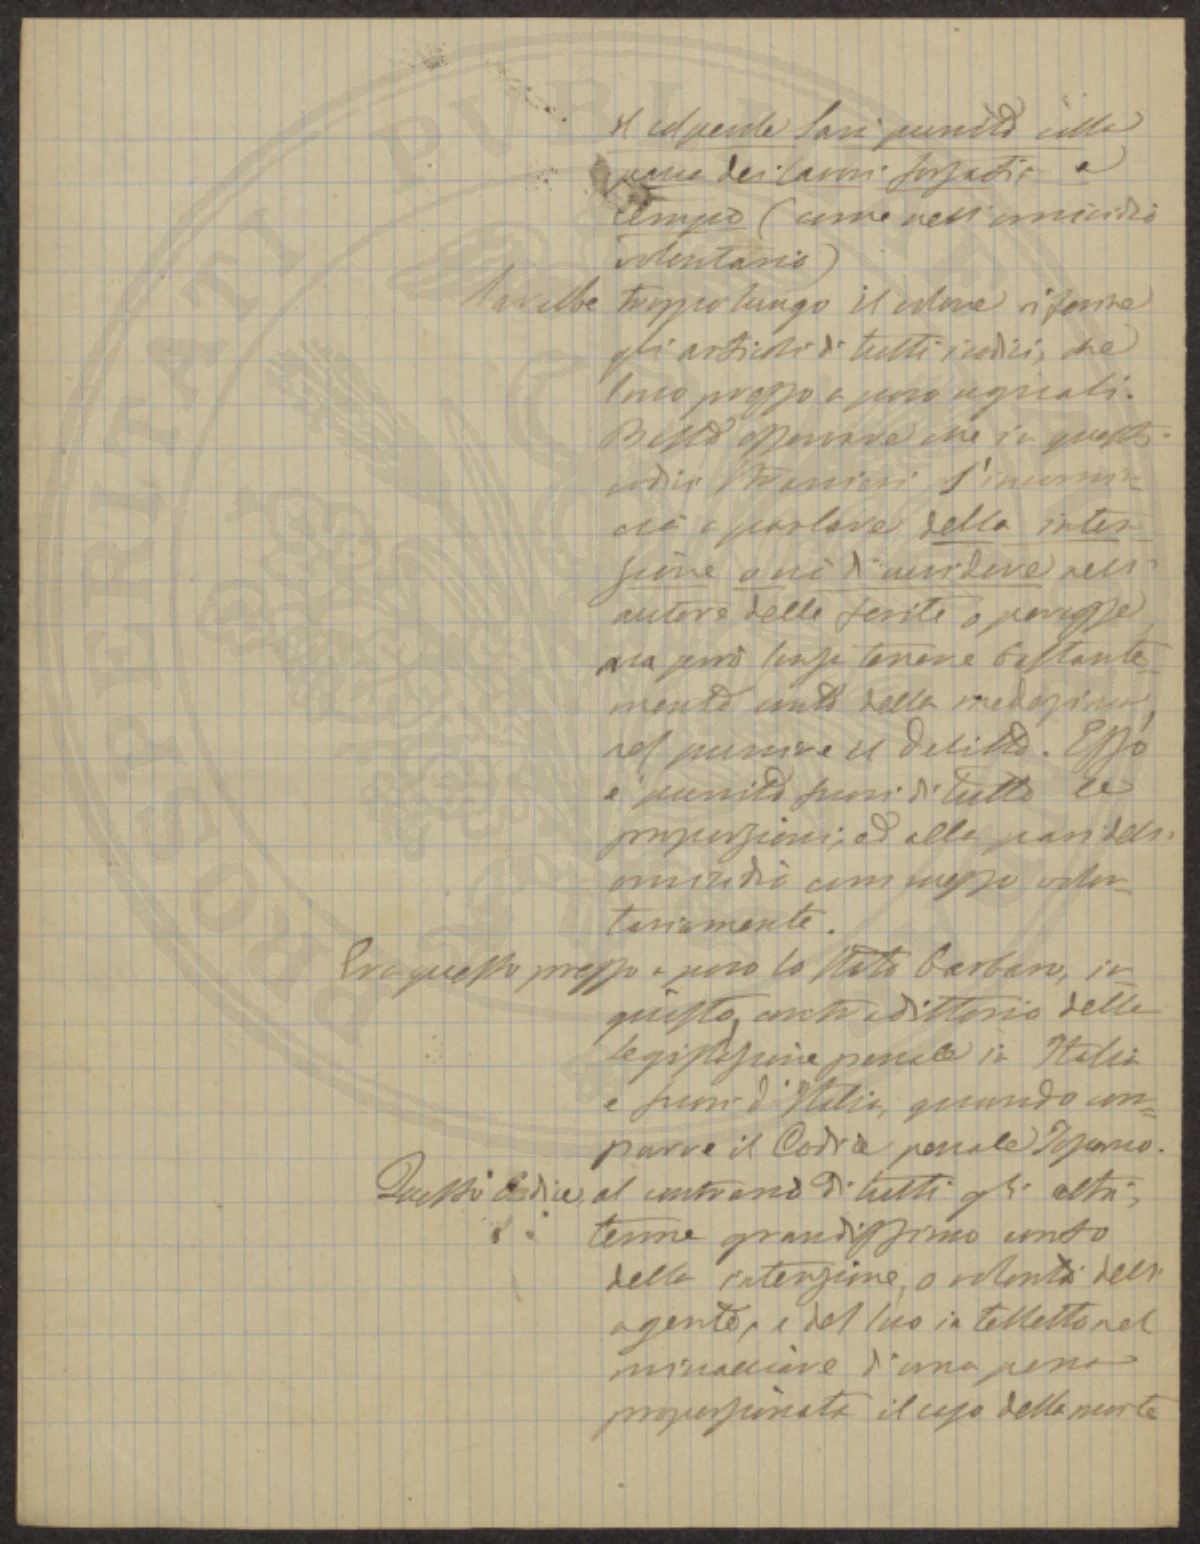 il colpevole sarà punito colla
pena dei lavori forzati a
tempo (come nell'omicidio
volontario)
Sarebbe troppo lungo il volere riferire
gli articoli di tutti i codici, che
sono presso a poco uguali.
Basta osservare che in questi
codici stranieri s'incomin=
cia a parlare della inten-
zione o no di uccidere nell'
autore delle ferite o percosse,
ma però senza tenere bastante-
mente conto della medesima,
nel punire il delitto. Esso
è punito fuori di tutte le
proporzioni, ed alla pari dell'
omicidio commesso volon=
tariamente.
Era questo presso a poco lo stato barbaro, in
giusto, contradittorio della
legislazione penale in Italia
e fuori d'Italia, quando com=
parve il Codice penale Toscano.
Questo Codice, al contrario di tutti gli altri,
tenne grandissimo conto
della intenzione, o volontà dell'
agente, e del suo intelletto nel
minacciare d'una pena
proporzionata il caso della morte
PROSPERITATI PUBLICAE